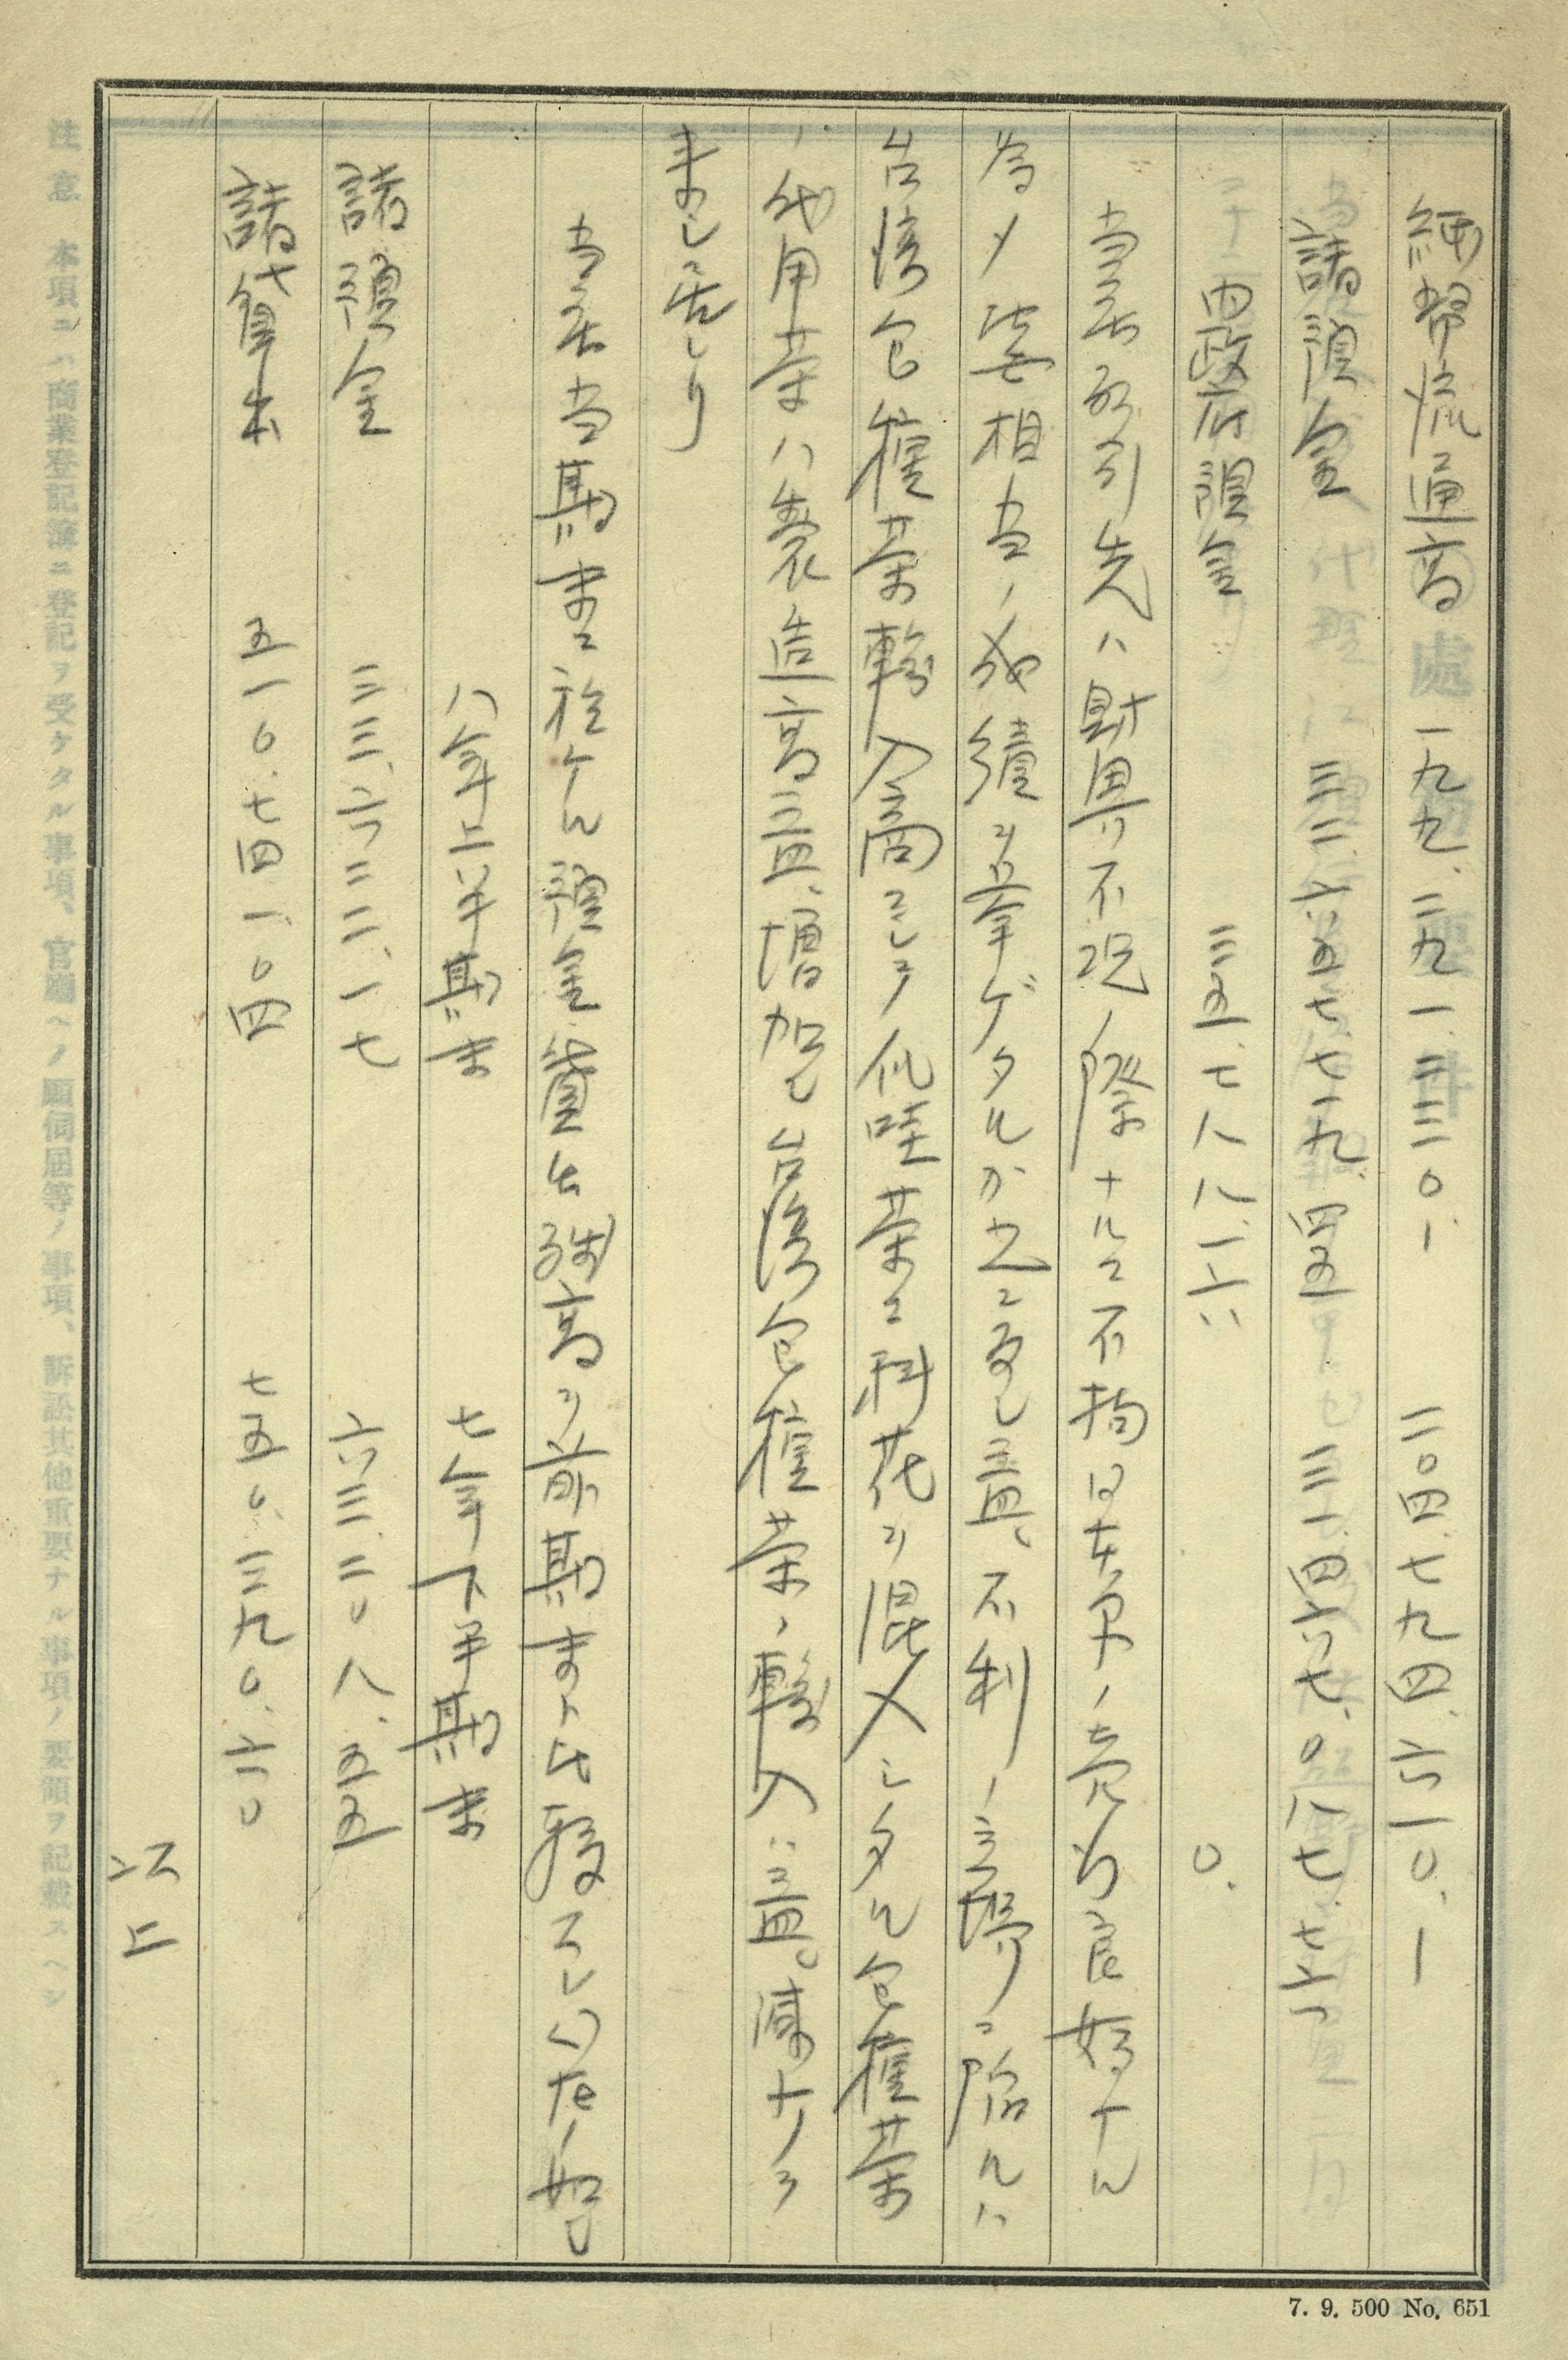 紙幣流通高 一九九、二九一、三三〇、一 二〇四、七九四、六一〇、一
諸預金 三二、六五七、七一九、四五 三一、四六七、〇八七、七六
内政府預金 三五、七八八、一六 〇、
当店取引先ハ財界不況ノ際ナルニ不拘日本茶ノ売行良好ナル
為メ比婁相当ノ成績ヲ挙ゲタルカ之ニ反し益々不利ノ立場ニ陥ルハ
台湾包種茶輸入商ニシテ爪哇茶ニ科花ヲ混入シタル包種茶
ノ代用茶ハ製造高益々増加し台湾包種茶ノ輸入ハ益々減少ヲ
来し居レリ
当店当期末ニ於ケル預金貸出残高ヲ前期末ト比較スレハ左ノ如し
八年上半期末 七年下半期末
諸預金 三三、六三二、一七 六三、二〇八、五五
諸貸出 五一〇、七四一、〇四 七五〇、三九〇、六〇
以上
注意 本項ニハ商業登記簿ニ登記ヲ受ケタル事項、官廳ヘノ願伺屆等ノ事項、訴訟其他重要ナル事項ノ要領ヲ記載スヘシ
7. 9. 500 No. 651